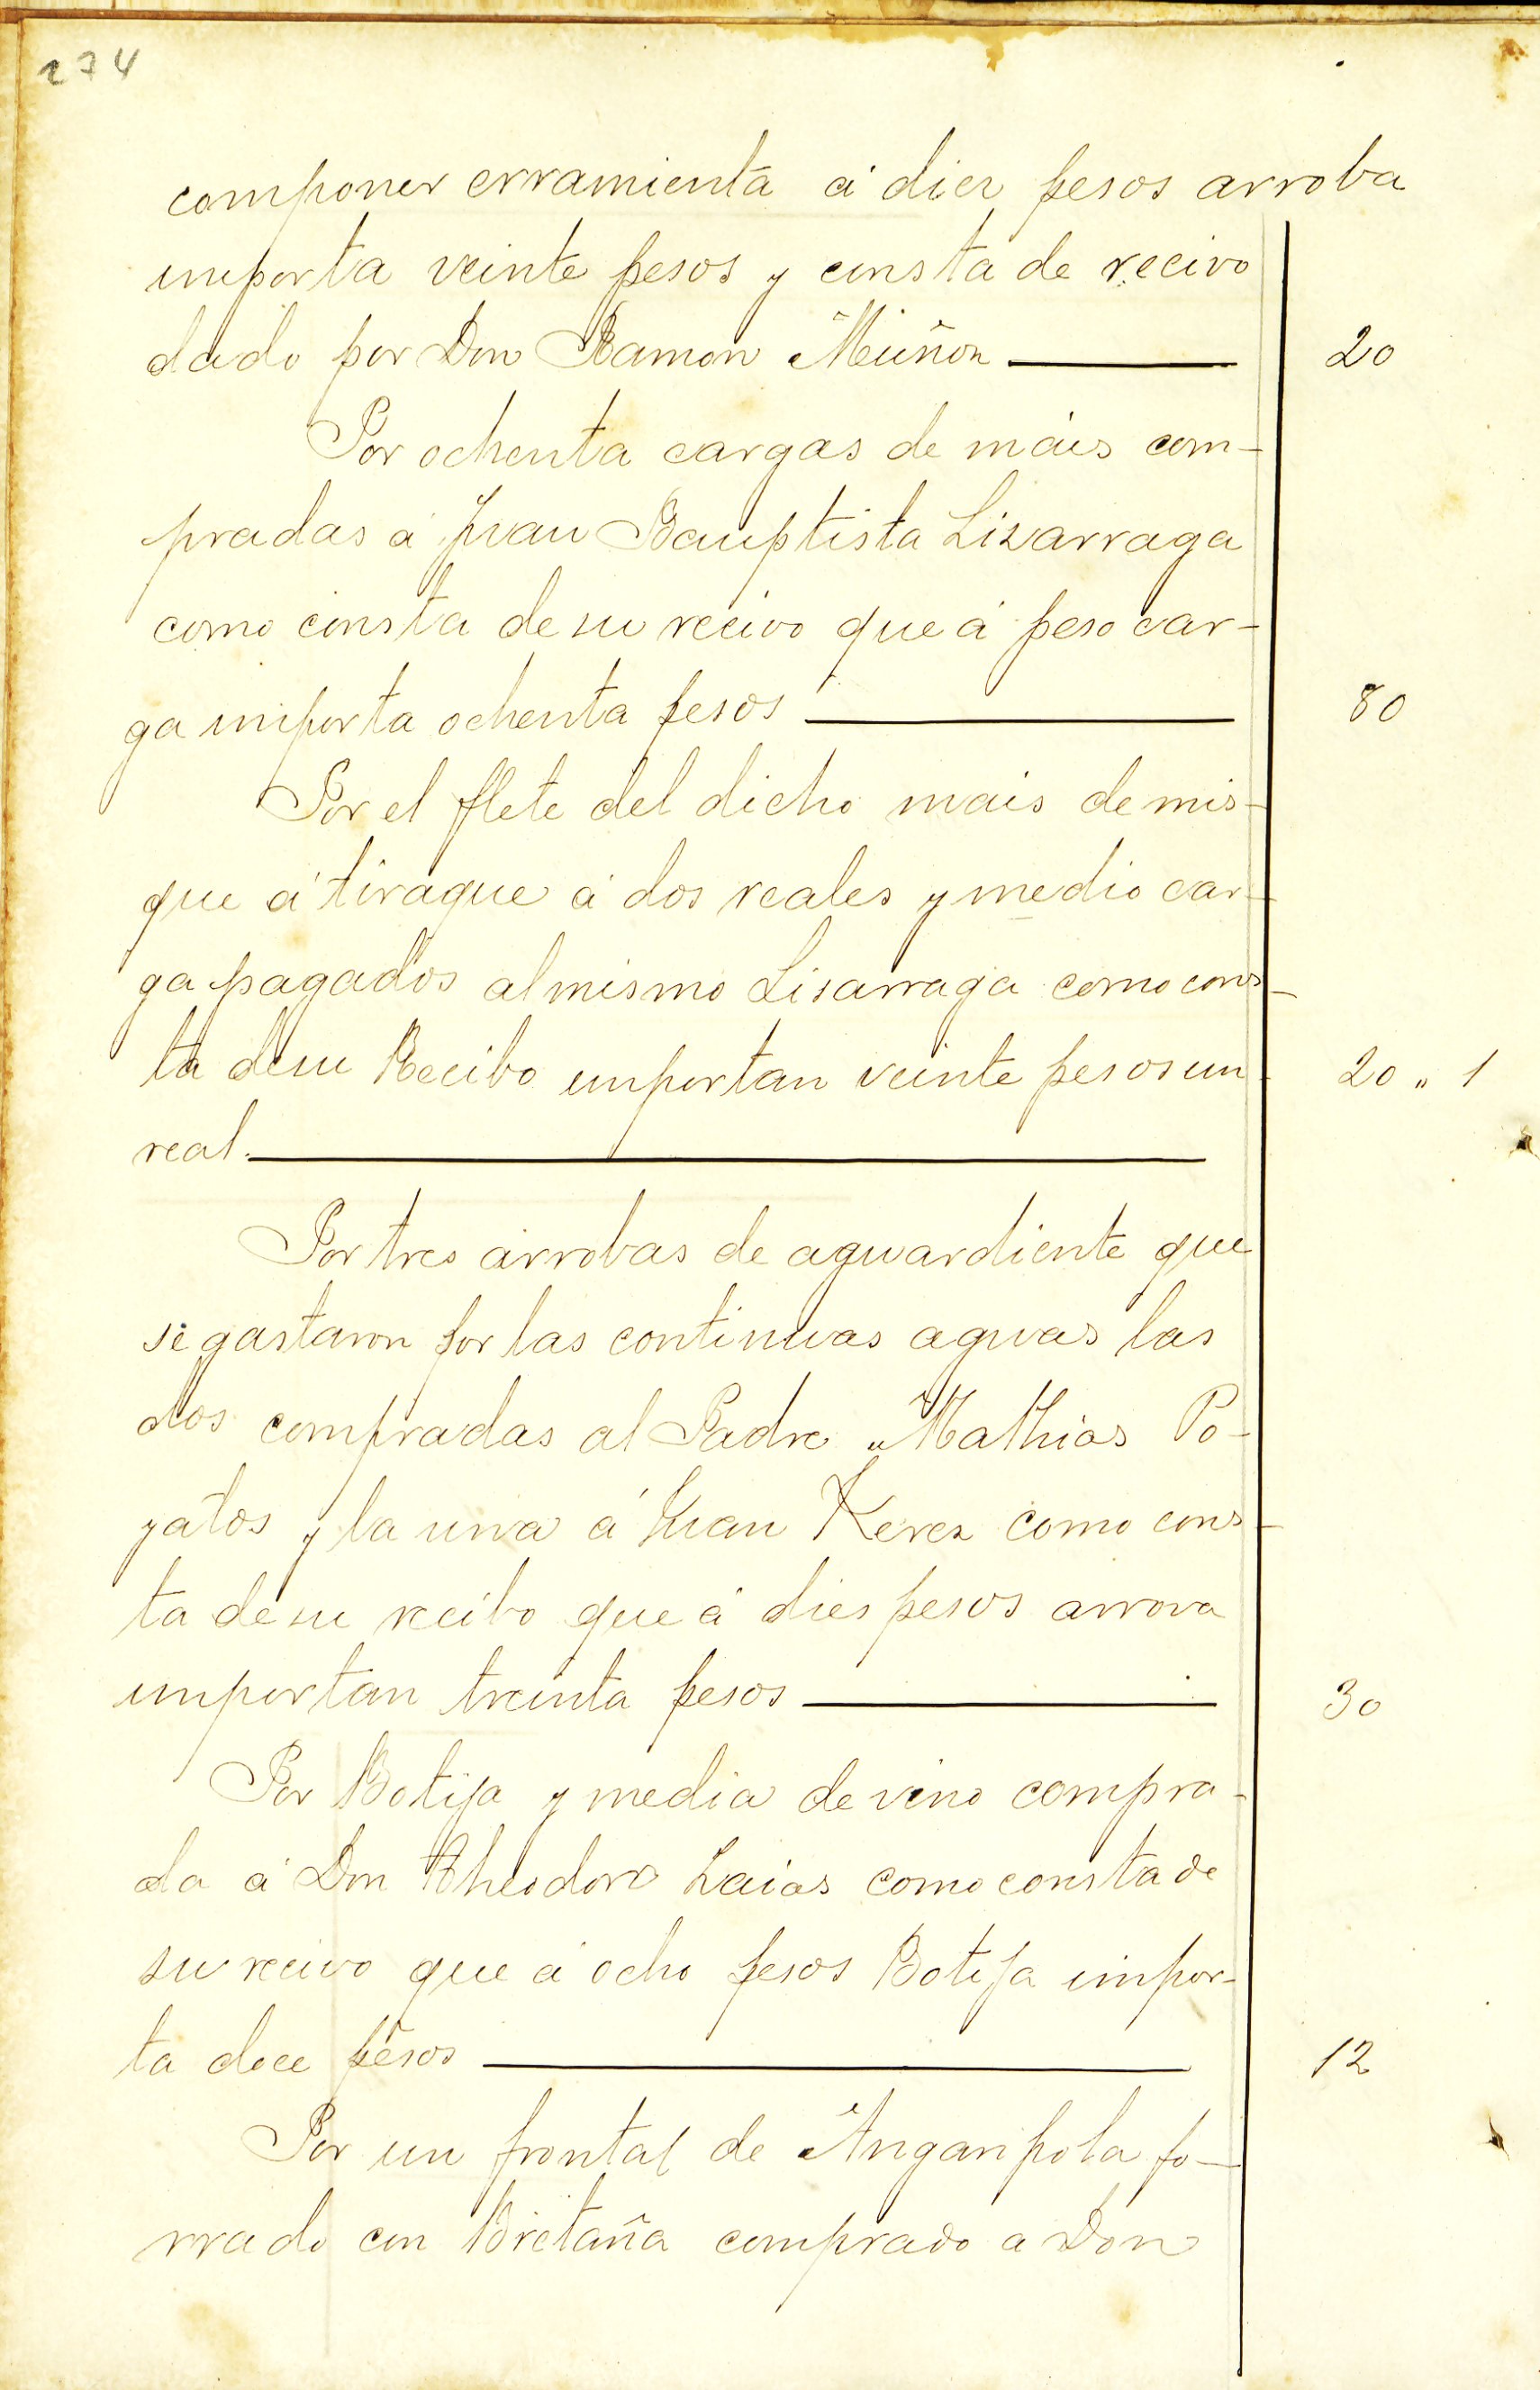 274
componer erramienta á diez pesos arroba
importa veinte pesos y consta de recivo
dado por Don Ramon Muñoz 20
Por ochenta cargas de mais com-
pradas á Juan Bauptista Lizarraga
como consta de su recivo que á peso car-
ga importa ochenta pesos 80
Por el flete del dicho mais de mis-
que á tiraque á dos reales y medio car-
ga pagados al mismo Lisarraga como cons-
ta de su Recibo importan veinte pesos un 20 " 1
real.
Por tres arrobas de aguardiente que
se gastaron por las continuas aguas las
dos compradas al Padre Mathias Po-
yatos y la una á Juan Xerez como cons-
ta de su recibo que á dies pesos arrova
importan treinta pesos 30
Por Botija y media de vino compra-
da á Don Theodoro Laias como consta de
su recivo que á ocho pesos Botija impor-
ta doce pesos 12
Por un frontal de Anganpola fo-
rrado con Bretaña comprado a Don